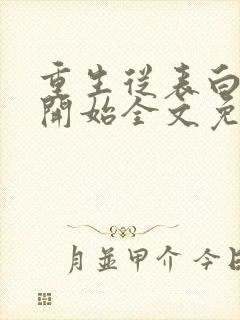 重生從表白
開始全文免
月並甲介 今日